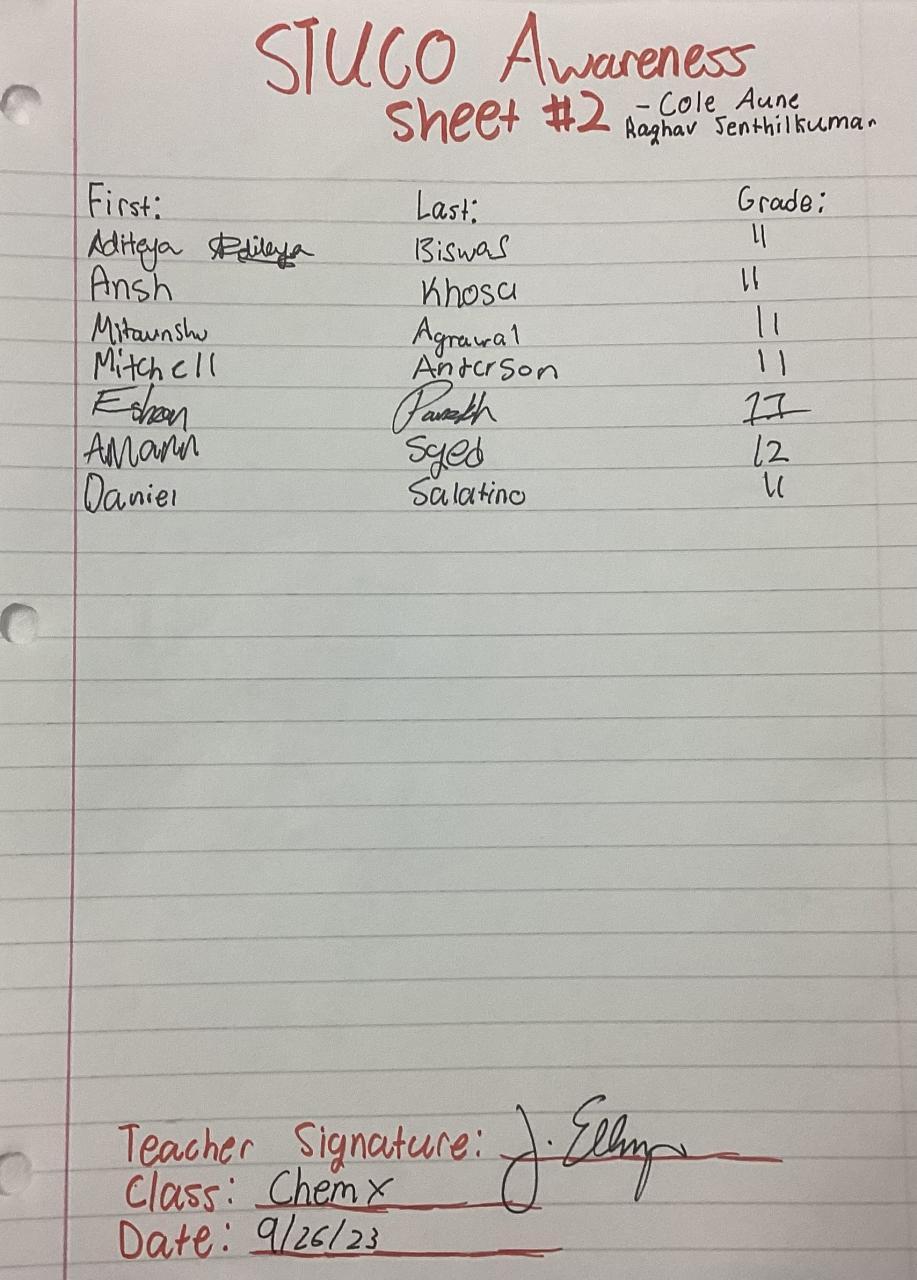 STUCO Awareness
Sheet #2 - Cole Aune
Raghav Senthilkumar
First: Last: Grade:
Aditeya Biswas 11
Ansh Khosa 11
Mitaunshu Agrawal 11
Mitchell Anterson 11
Eshan Parekh 11
AMann Syed 12
Daniel Salatino 11
Teacher Signature: J.
Class: Chem X
Date: 9/26/23